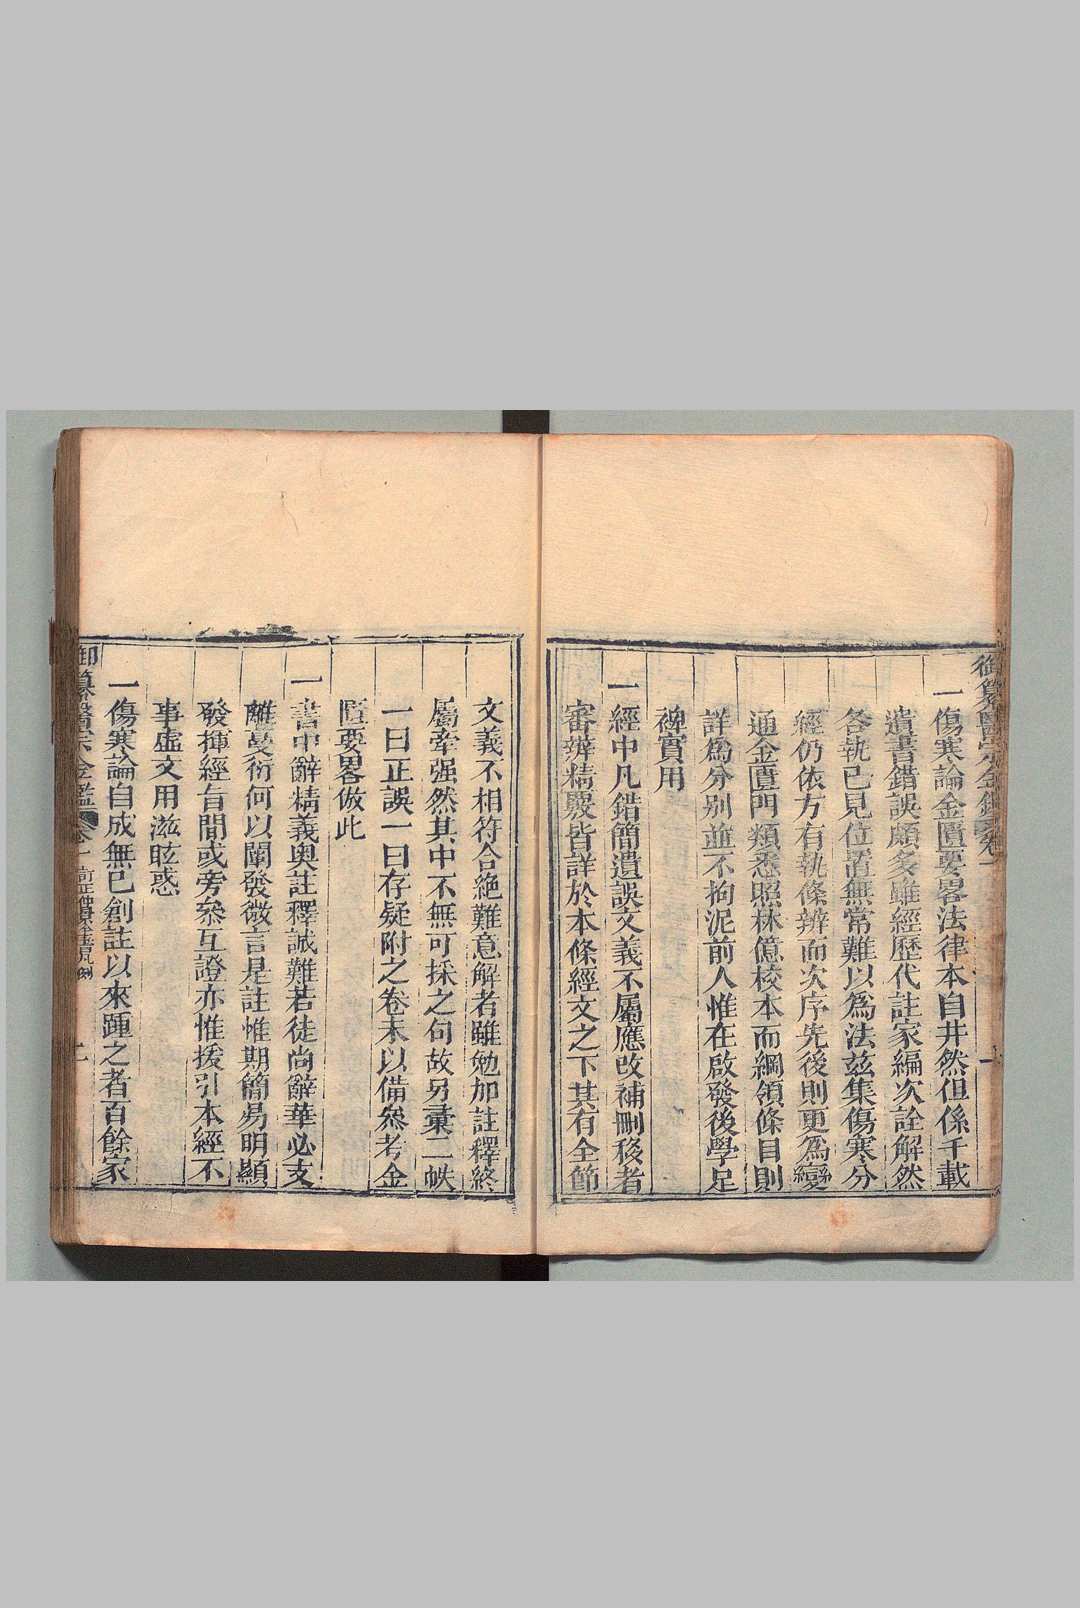 御纂醫宗金鑑 卷一
一
一傷寒論金匱要畧法律本自井然但係千載
遺書錯誤頗多雖經歷代註家編次詮解然
各執己見位置無常難以爲法兹集傷寒分
經仍依方有執條辨而次序先後則更為變
通金匱門類悉照林億校本而綱領條目則
詳爲分别並不拘泥前人惟在啟發後學足
裨實用
一經中凡錯簡遺誤文義不屬應改補刪移者
審辨精覈皆詳於本條經文之下其有全節
文義不相符合絶難意解者雖勉加註釋終
屬牽强然其中不無可採之句故另彚二帙
一曰正誤一曰存疑附之卷末以備叅考金
匱要畧倣此
一書中辭精義奥註釋誠難若徒尚辭華必支
離蔓衍何以闡發微言是註惟期簡易明顯
發揮經旨間或旁叅互證亦惟援引本經不
事虚文用滋眩惑
一傷寒論自成無已創註以來踵之者百餘家
御纂醫宗金鑑 卷一